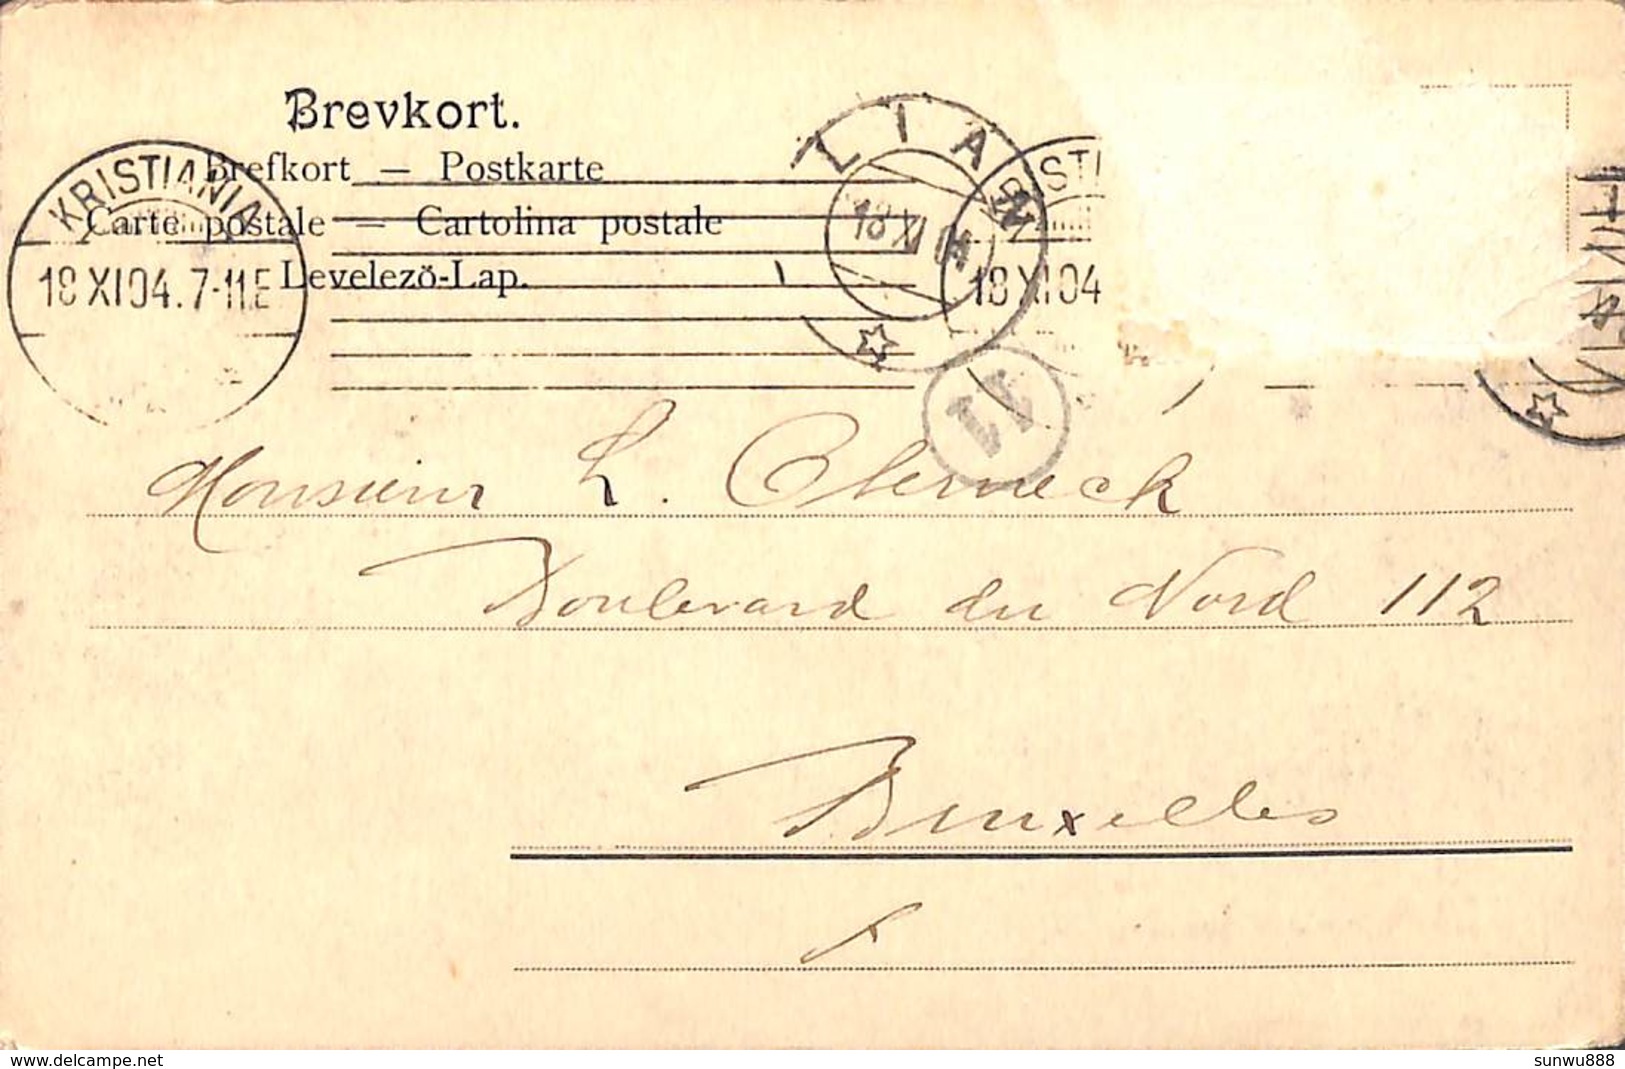 Brevkort.
Brefkort — Postkarte
Carte postale — Cartolina postale
Levelezö-Lap.
KRISTIANIA
18 XI 04. 7-11.E
LIAN
18 XI 04
STI
18 XI 04
Monsieur L.
Boulevard du Nord 112
Bruxelles
www.delcampe.net
sunwu888